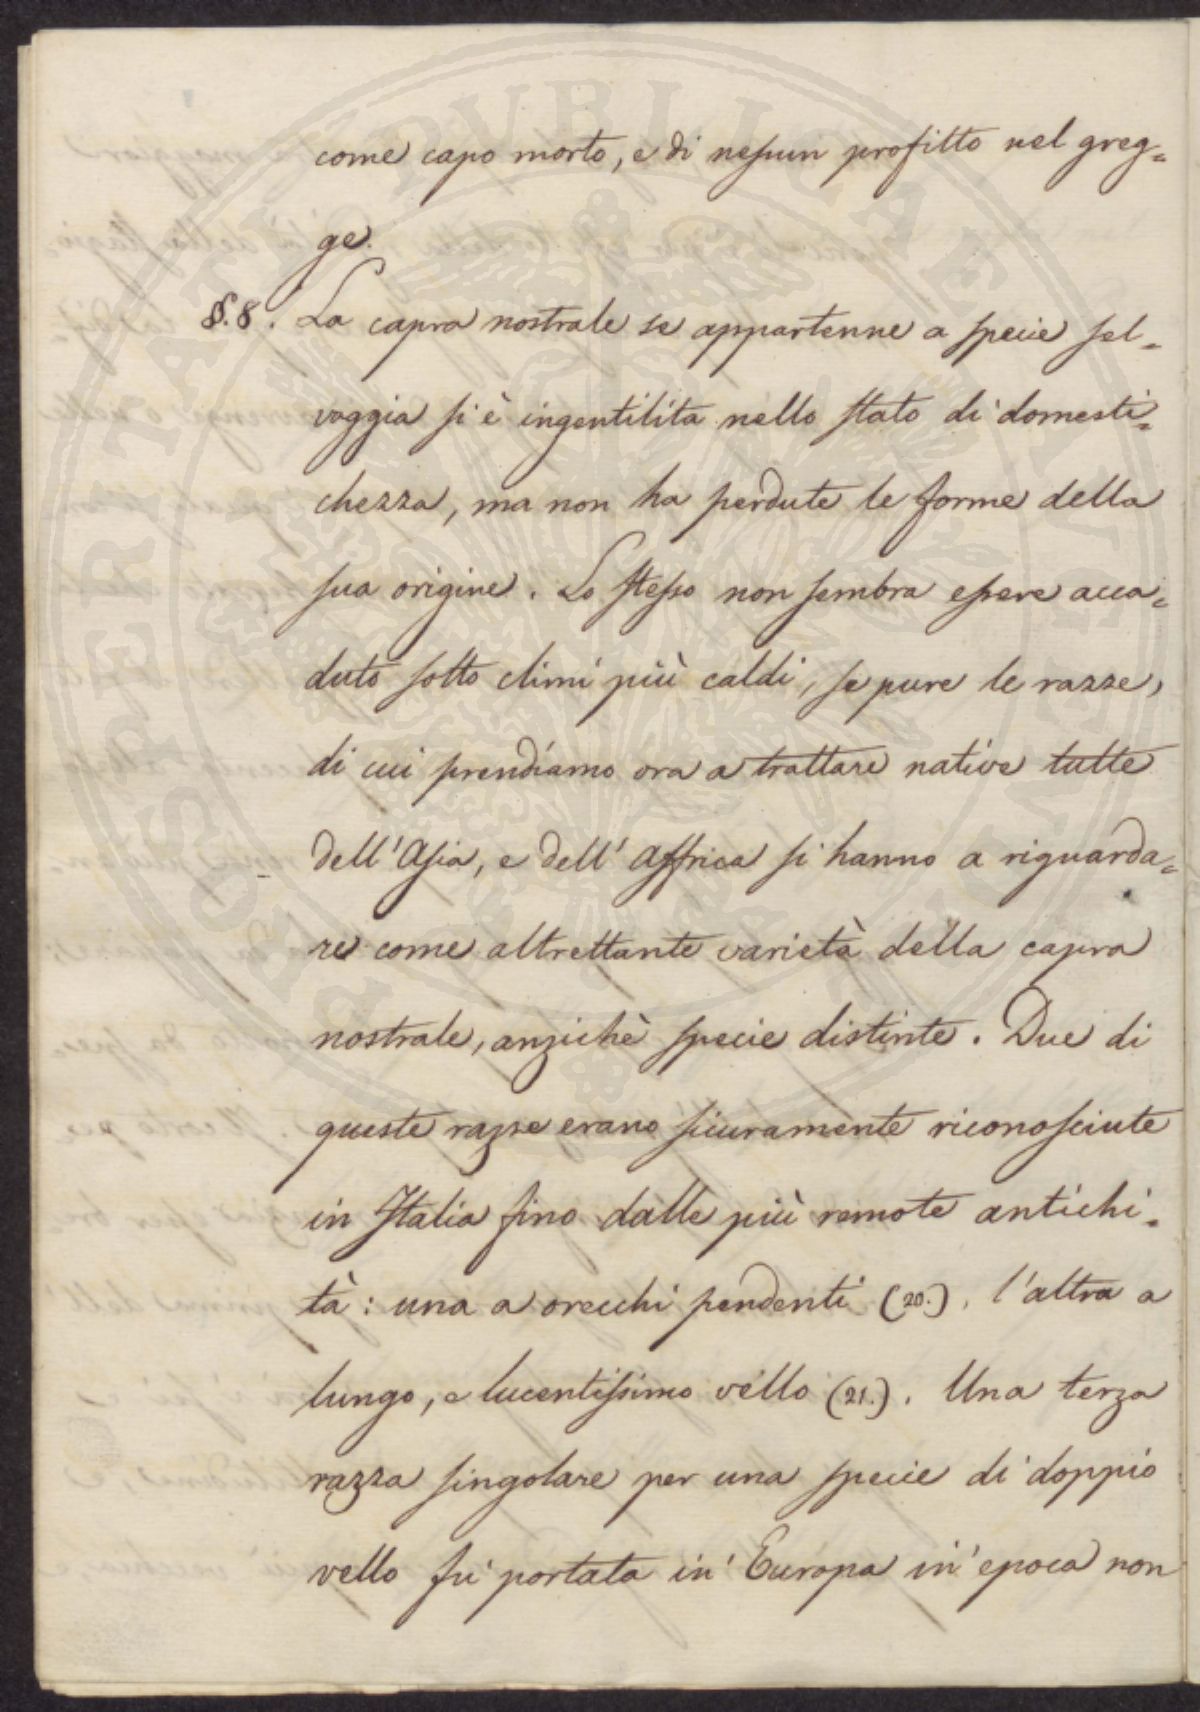 come capo morto, e di nessun profitto nel greg=
ge.
§. 8. La capra nostrale se appartenne a specie sel=
vaggia si è ingentilita nello stato di domesti=
chezza, ma non ha perdute le forme della
sua origine. Lo stesso non sembra essere acca=
duto sotto climi più caldi, se pure le razze,
di cui prendiamo ora a trattare native tutte
dell'Asia, e dell'Affrica si hanno a riguarda=
re come altrettante varietà della capra
nostrale, anzichè specie distinte. Due di
queste razze erano sicuramente riconosciute
in Italia fino dalle più remote antichi=
tà: una a orecchi pendenti (20.), l'altra a
lungo, e lucentissimo vello (21.). Una terza
razza singolare per una specie di doppio
vello fu portata in Europa in epoca non
PROSPERITATI PUBLICAE AUGENDAE